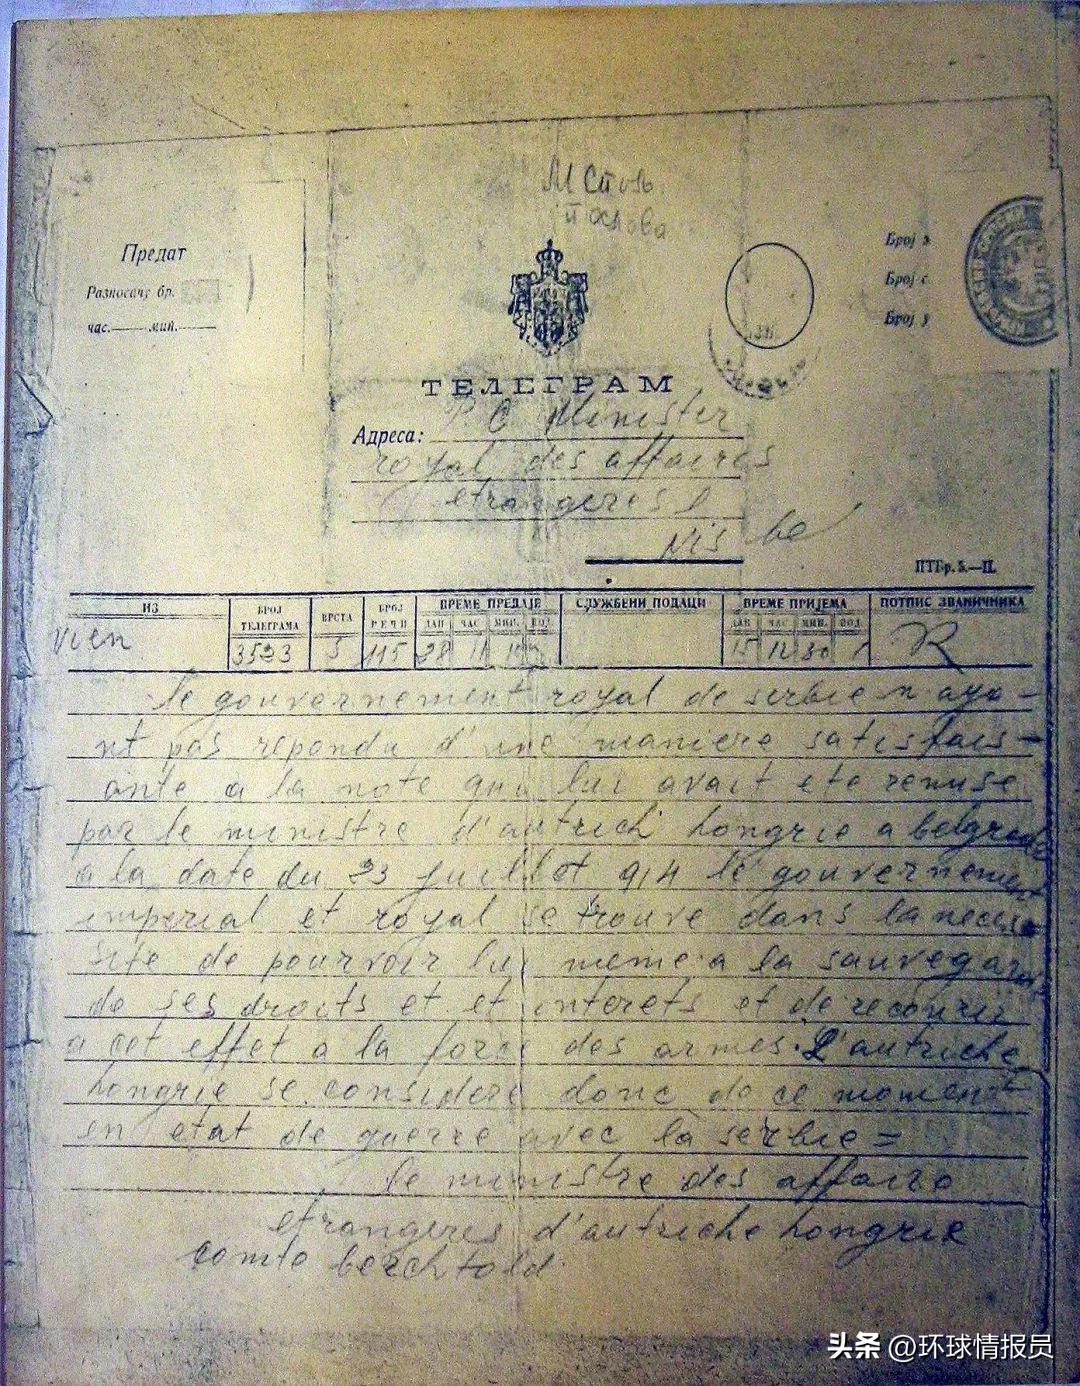 М Спољ.
послова
Предат
Разносачу бр.
час.——мин.——
Број
Број
Број
ТЕЛЕГРАМ
Адреса: Minister
royal des affaires
etrangeres
Nis
ПТБр. 5.—II.
ИЗ
БРОЈ ТЕЛЕГРАМА
ВРСТА
БРОЈ РЕЧИ
ВРЕМЕ ПРЕДАЈЕ
СЛУЖБЕНИ ПОДАЦИ
ВРЕМЕ ПРИЈЕМА
ПОТПИС ЗВАНИЧНИКА
ДАН ЧАС МИН. ПОД.
ДАН ЧАС МИН. ПОД.
Vien 3523 5 115 28 11 15 12 30 R
le gouvernement royal de serbie n aya-
nt pas repondu d'une maniere satisfais-
ante a la note qui lui avait ete remise
par le ministre d'autrich hongrie a belgrade
a la date du 23 juillet 914 le gouvernement
imperial et royal se trouve dans la neces-
site de pourvoir lui meme a la sauvegar
de ses droits et et interets et de recourir
a cet effet a la force des armes. L'autriche
hongrie se considere donc de ce moment
en etat de guerre avec la serbie =
le ministre des affaire
etrangeres d'autriche hongrie
comte berchtold
头条 @环球情报员